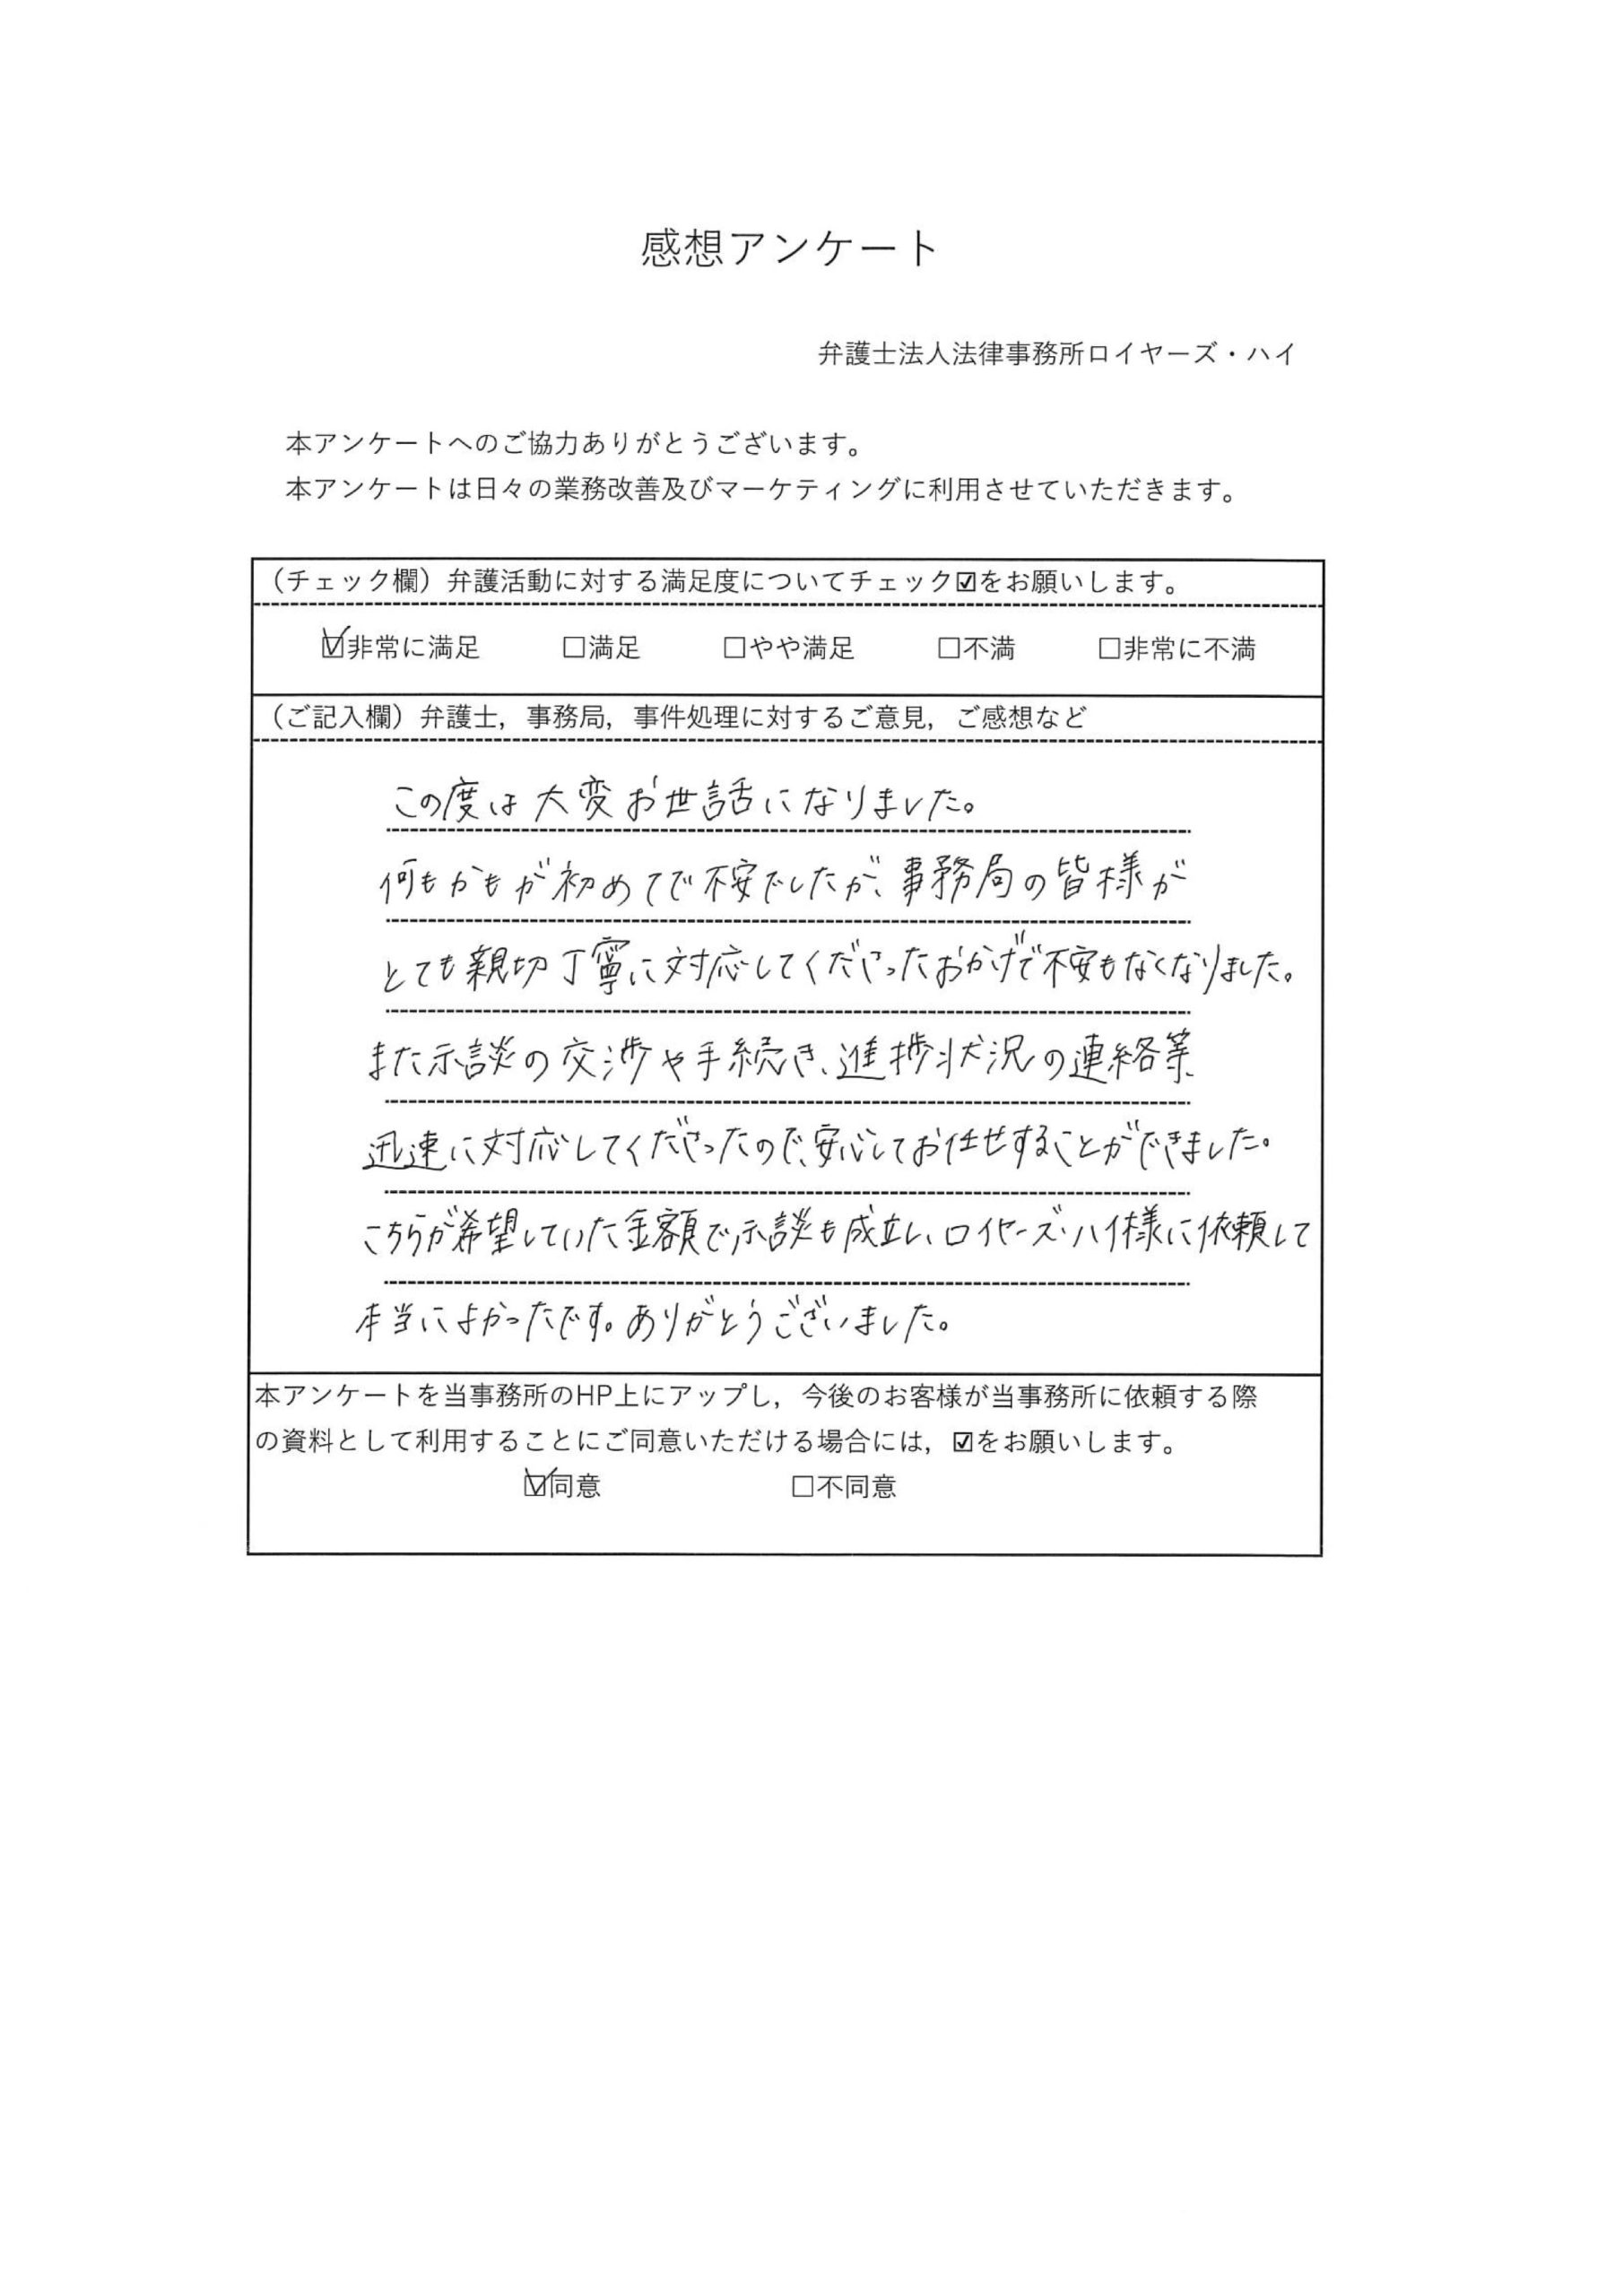 感想アンケート
弁護士法人法律事務所ロイヤーズ・ハイ
本アンケートへのご協力ありがとうございます。
本アンケートは日々の業務改善及びマーケティングに利用させていただきます。
（チェック欄）弁護活動に対する満足度についてチェック☑をお願いします。
☑非常に満足 □満足 □やや満足 □不満 □非常に不満
（ご記入欄）弁護士，事務局，事件処理に対するご意見，ご感想など
この度は大変お世話になりました。
何もかもが初めてで不安でしたが、事務局の皆様が
とても親切丁寧に対応してくださったおかげで不安もなくなりました。
また示談の交渉や手続き、進捗状況の連絡等
迅速に対応してくださったので、安心してお任せすることができました。
こちらが希望していた金額で示談も成立し、ロイヤーズ・ハイ様に依頼して
本当によかったです。ありがとうございました。
本アンケートを当事務所のHP上にアップし，今後のお客様が当事務所に依頼する際
の資料として利用することにご同意いただける場合には，☑をお願いします。
☑同意 □不同意